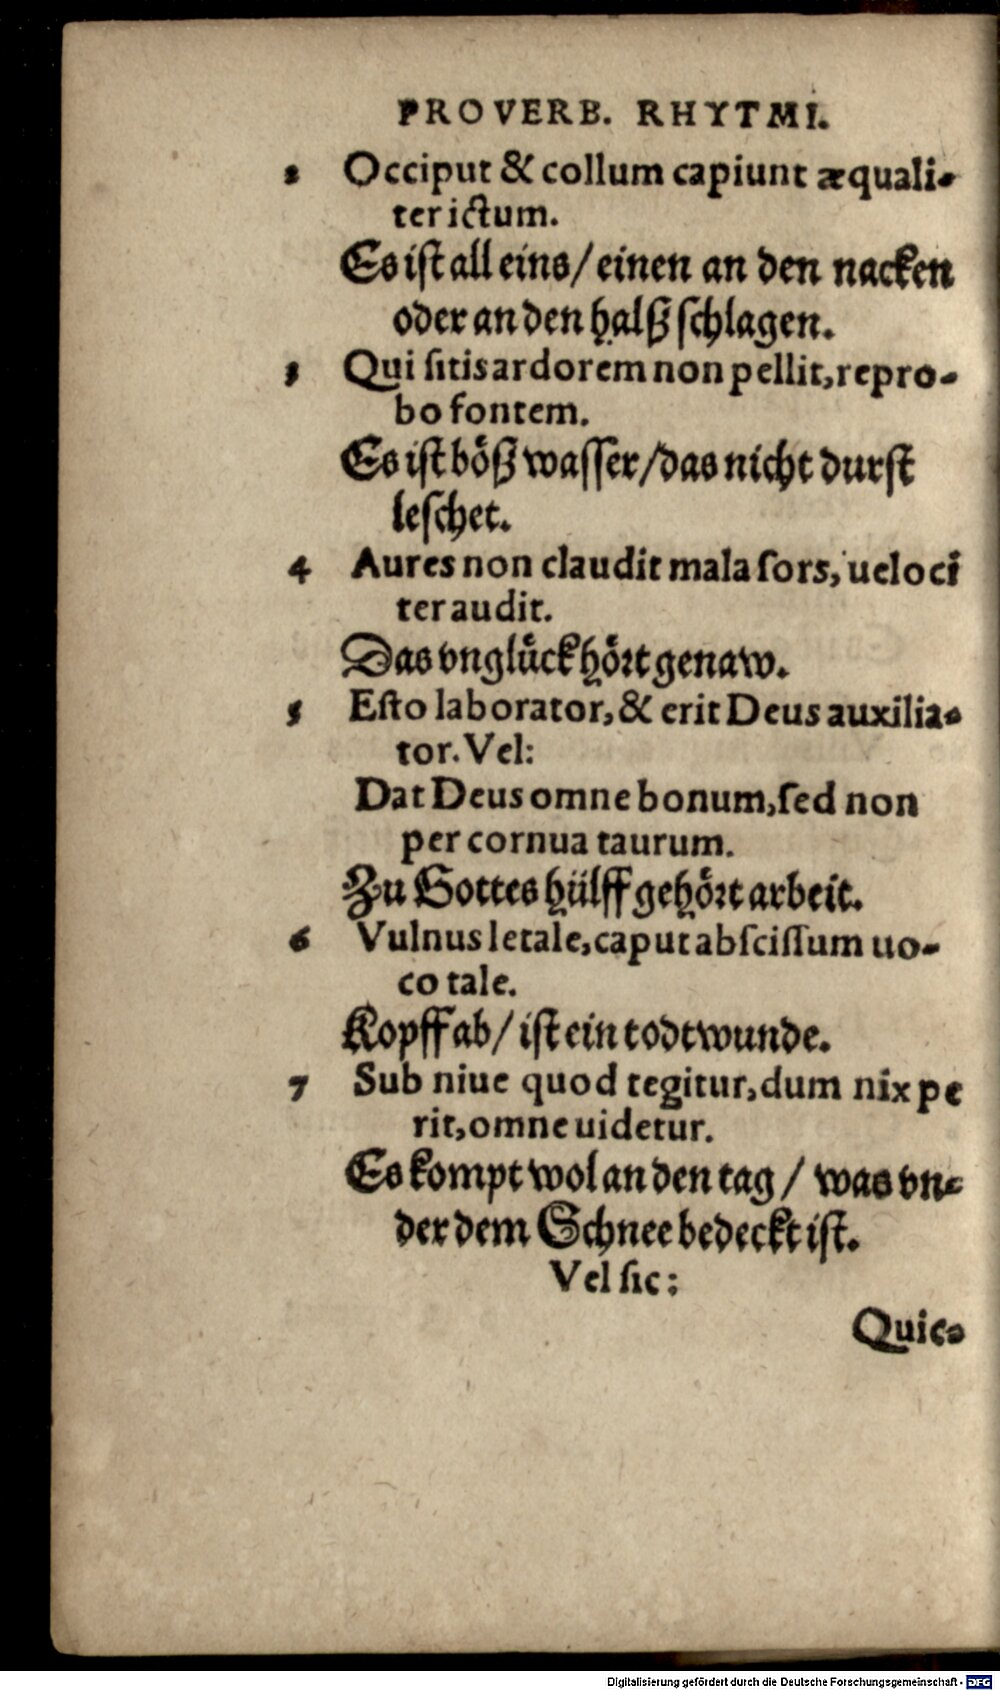 PROVERB. RHYTMI.
2 Occiput & collum capiunt æquali-
ter ictum.
Es ist all eins / einen an den nacken
oder an den halß schlagen.
3 Qui ſitis ardorem non pellit, repro-
bo fontem.
Es iſt böß waſſer / das nicht durſt
leſchet.
4 Aures non claudit mala ſors, ueloci
ter audit.
Das vnglück hört genaw.
5 Eſto laborator, & erit Deus auxilia-
tor. Vel:
Dat Deus omne bonum, ſed non
per cornua taurum.
Zu Gottes hülff gehört arbeit.
6 Vulnus letale, caput abſciſſum uo-
co tale.
Kopff ab / iſt ein todtwunde.
7 Sub niue quod tegitur, dum nix pe
rit, omne uidetur.
Es kompt wol an den tag / was vn-
der dem Schnee bedeckt iſt.
Vel ſic:
Quic-
Digitalisierung gefördert durch die Deutsche Forschungsgemeinschaft - DFG